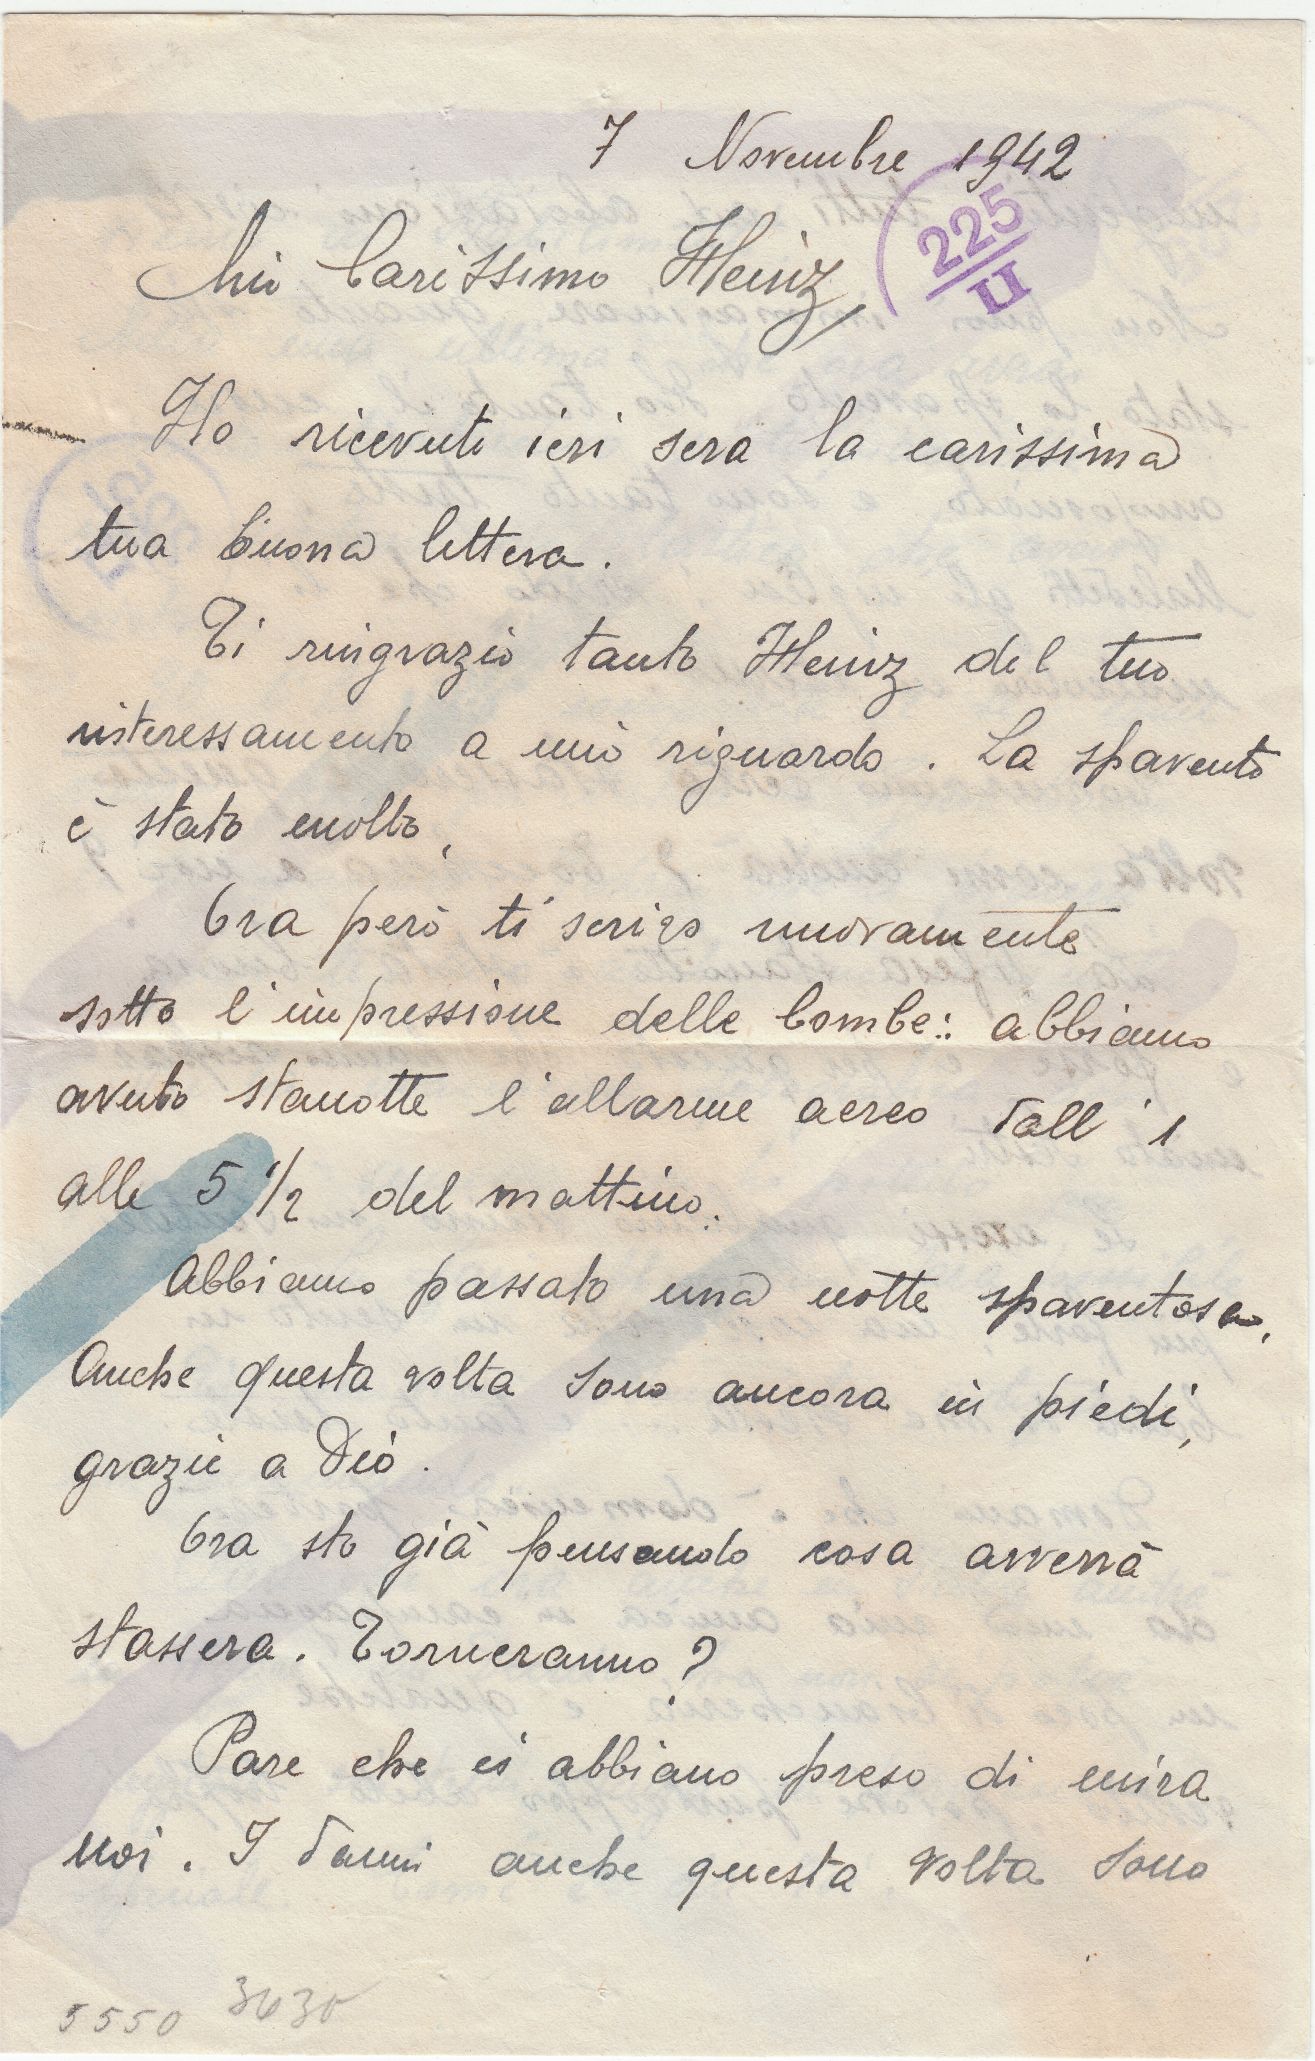 7 Novembre 1942
225
II
Mio Carissimo Heinz,
Ho ricevuto ieri sera la carissima
tua buona lettera.
Ti ringrazio tanto Heinz del tuo
interessamento a mio riguardo. Lo spavento
è stato molto,
Ora però ti scrivo nuovamente
sotto l'impressione delle bombe: abbiamo
avuto stanotte l'allarme aereo dall'1
alle 5 1/2 del mattino.
Abbiamo passato una notte spaventosa,
Anche questa volta sono ancora in piedi,
grazie a Dio.
Ora sto già pensando cosa avverrà
stassera. Torneranno?
Pare che ci abbiano preso di mira
noi. I danni anche questa volta sono
5550 3630